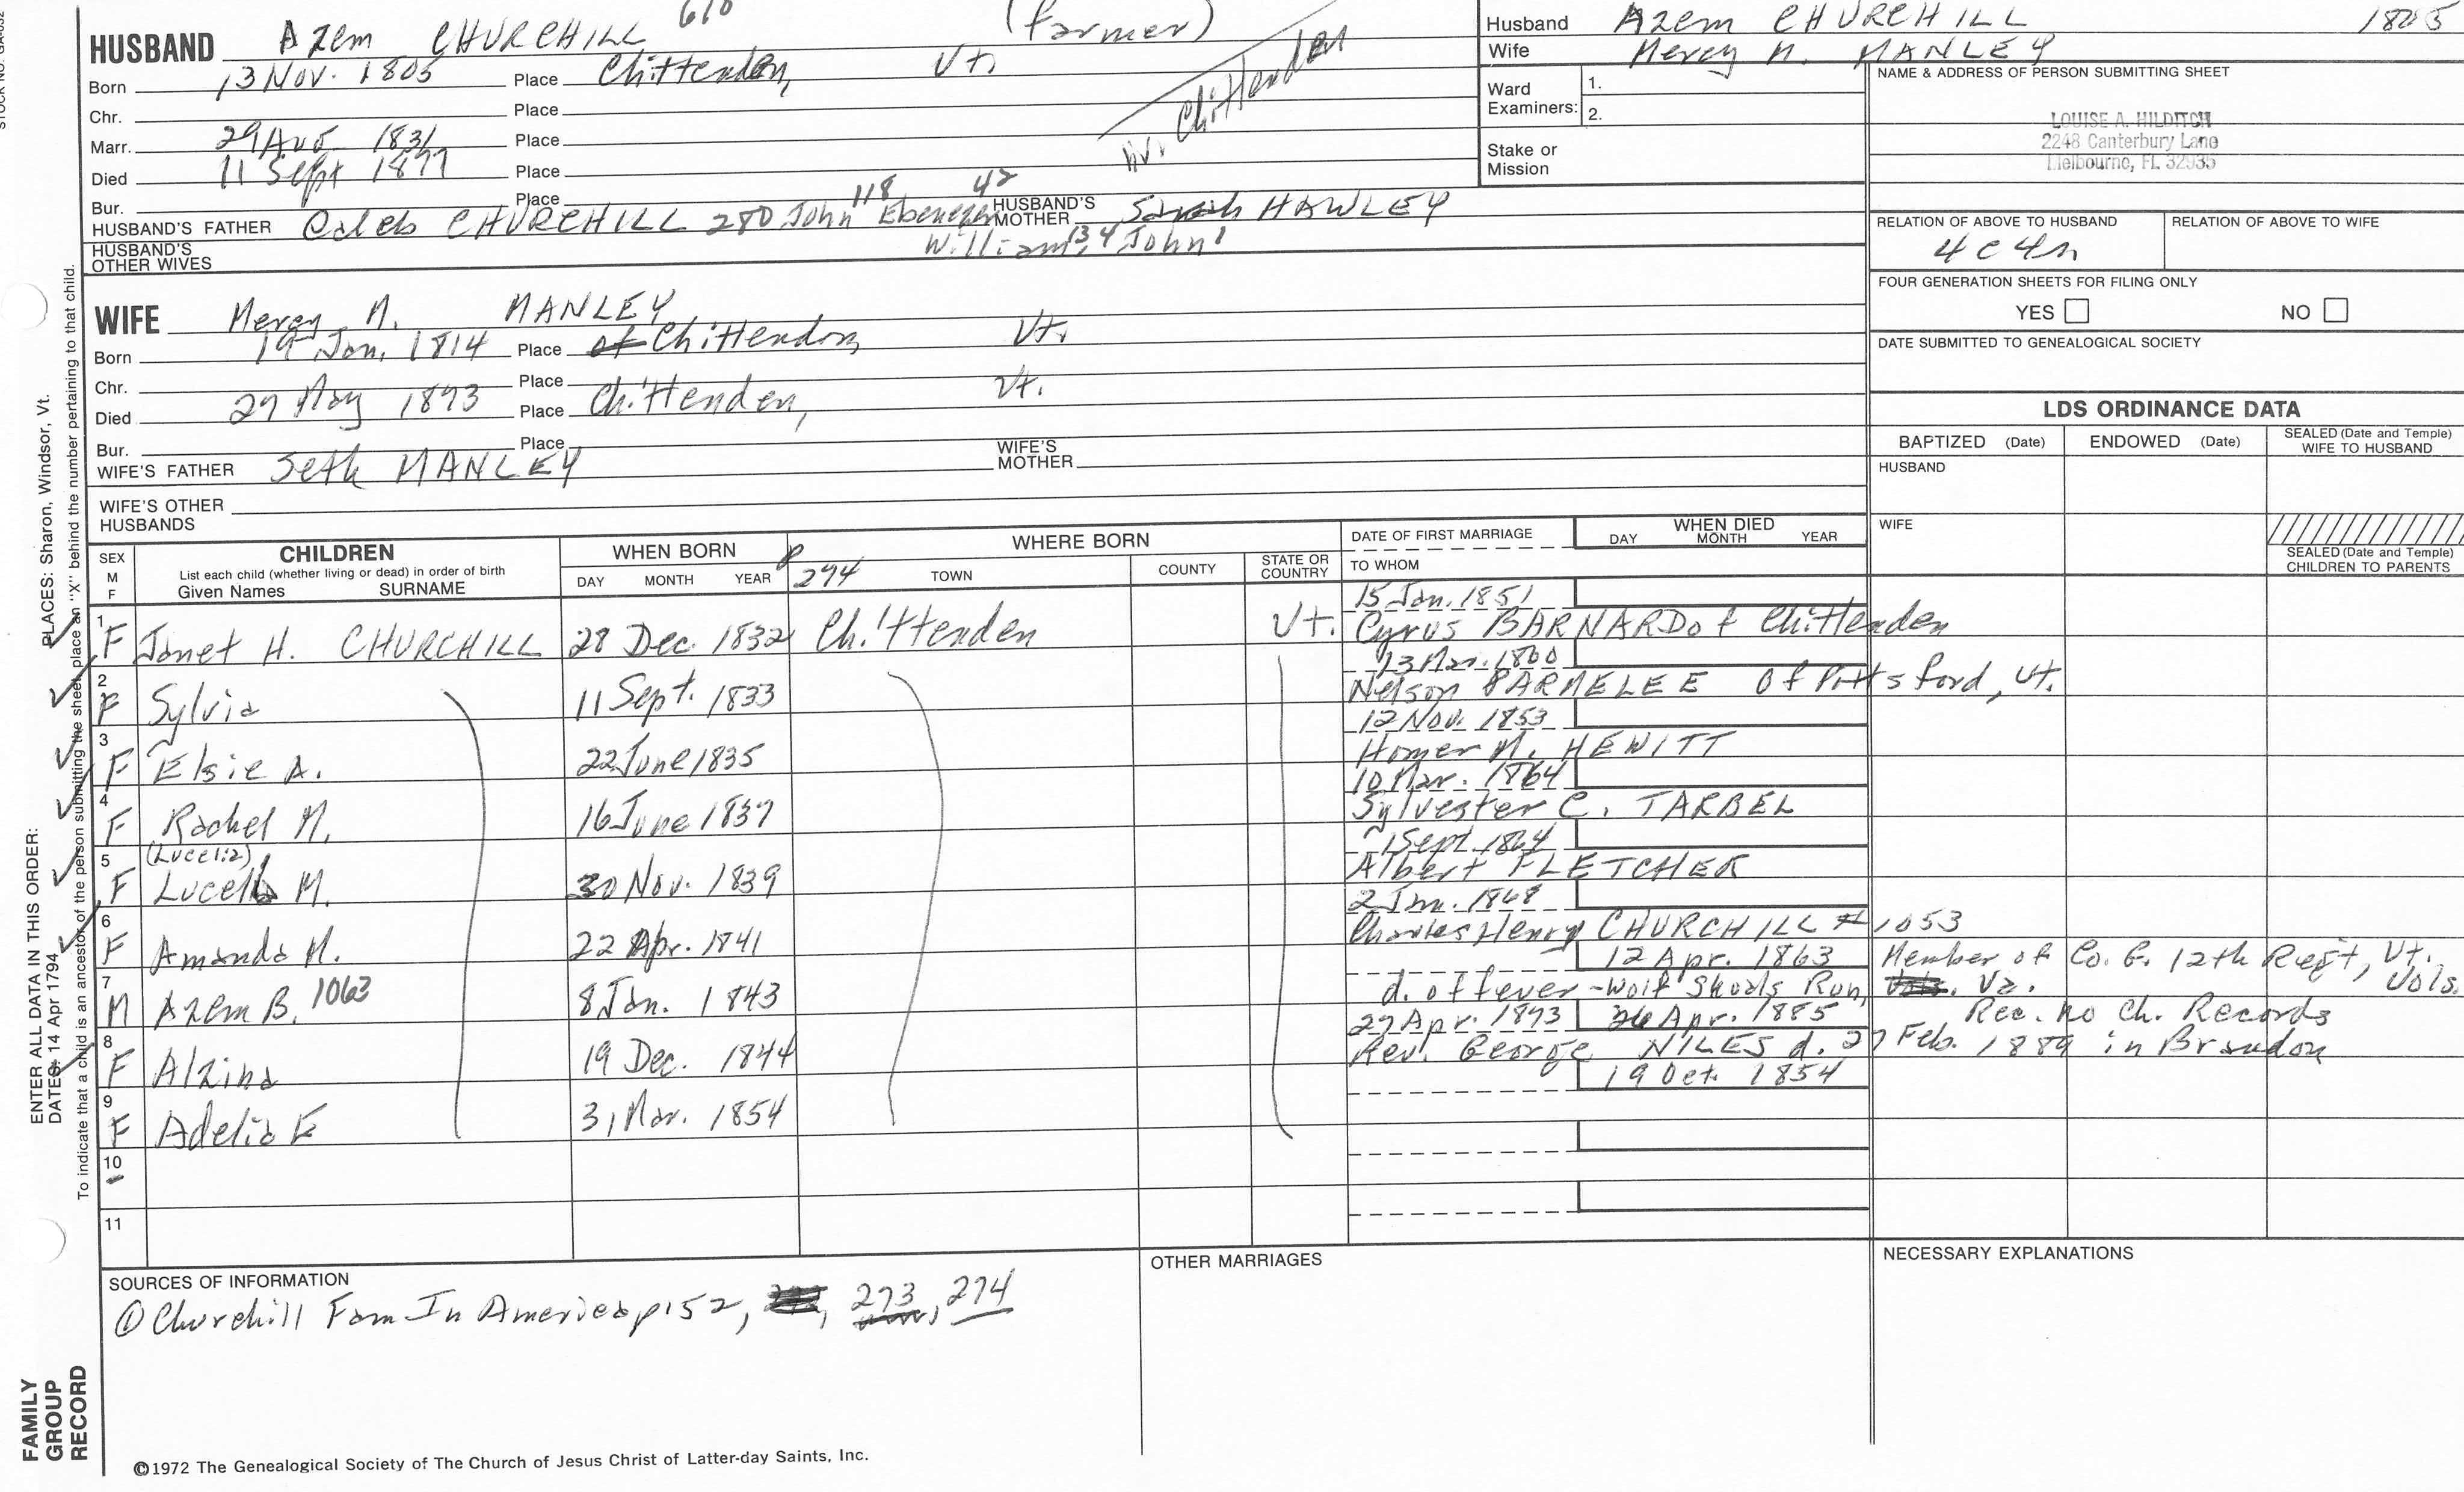 STOCK NO. GA-032
HUSBAND Azem CHURCHILL 610 (farmer)
Born 13 Nov. 1805 Place Chittenden, Vt.
Chr. Place
Marr. 29 Aug. 1831 Place
liv. Chittenden
Died 11 Sept 1877 Place
Bur. Place
HUSBAND'S FATHER Caleb CHURCHILL 280 John 118 Ebenezer 42 HUSBAND'S MOTHER Sarah HAWLEY
William 13, 4 John 1
HUSBAND'S OTHER WIVES
WIFE Mercy M. MANLEY
Born 19 Jan. 1814 Place of Chittenden, Vt.
Chr. Place Vt.
Died 27 May 1893 Place Chittenden,
Bur. Place
WIFE'S FATHER Seth MANLEY WIFE'S MOTHER
WIFE'S OTHER HUSBANDS
Husband Azem CHURCHILL 1805
Wife Mercy M. MANLEY
Ward Examiners: 1.
2.
Stake or Mission
NAME & ADDRESS OF PERSON SUBMITTING SHEET
LOUISE A. HILDITCH
2248 Canterbury Lane
Melbourne, FL 32935
RELATION OF ABOVE TO HUSBAND RELATION OF ABOVE TO WIFE
4c4r
FOUR GENERATION SHEETS FOR FILING ONLY
YES NO
DATE SUBMITTED TO GENEALOGICAL SOCIETY
LDS ORDINANCE DATA
BAPTIZED (Date) ENDOWED (Date) SEALED (Date and Temple) WIFE TO HUSBAND
HUSBAND
WIFE
SEALED (Date and Temple) CHILDREN TO PARENTS
SEX M F CHILDREN List each child (whether living or dead) in order of birth Given Names SURNAME
WHEN BORN DAY MONTH YEAR
WHERE BORN p 294 TOWN COUNTY STATE OR COUNTRY
DATE OF FIRST MARRIAGE TO WHOM
WHEN DIED DAY MONTH YEAR
15 Jan. 1851
1 F Janet H. CHURCHILL 28 Dec. 1832 Chittenden Vt. Cyrus BARNARD of Chittenden
13 Mar. 1860
2 F Sylvia 11 Sept. 1833 Nelson PARMELEE of Pittsford, Vt.
12 Nov. 1853
3 F Elsie A. 22 June 1835 Homer M. HEWITT
10 Mar. 1864
4 F Rachel M. 16 June 1837 Sylvester C. TARBEL
1 Sept. 1864
(Lucelia)
5 F M. 30 Nov. 1839 Albert FLETCHER
2 Jan. 1868
6 F Amanda M. 22 Apr. 1841 Charles Henry CHURCHILL #1053
12 Apr. 1863 Member of Co. G. 12th Regt, Vt. Vols.
7 M Azem B. 1063 8 Jan. 1843 d. of fever - Wolf Shoals Run, Va.
27 Apr. 1873 26 Apr. 1885 Rec. no Ch. Records
8 F Alzina 19 Dec. 1844 Rev. George NILES d. 27 Feb. 1889 in Brandon
19 Oct. 1854
9 F Adelia E 31 Mar. 1854
10
11
SOURCES OF INFORMATION
① Churchill Fam In America p 152, 273, 274
OTHER MARRIAGES
NECESSARY EXPLANATIONS
©1972 The Genealogical Society of The Church of Jesus Christ of Latter-day Saints, Inc.
FAMILY GROUP RECORD
ENTER ALL DATA IN THIS ORDER:
DATES: 14 Apr 1794
PLACES: Sharon, Windsor, Vt.
To indicate that a child is an ancestor of the person submitting the sheet, place an "X" behind the number pertaining to that child.